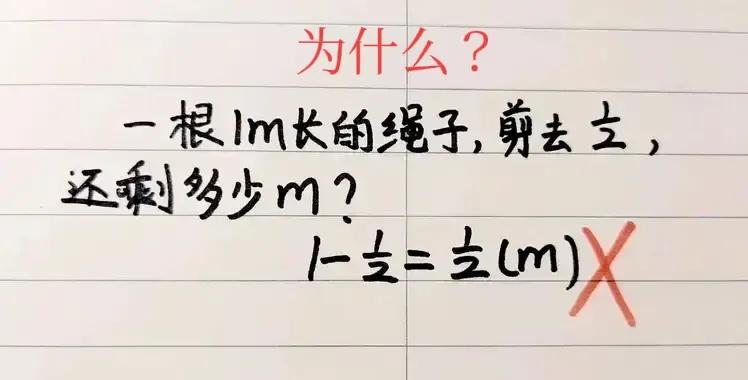 为什么？
一根1m长的绳子,剪去1/2,
还剩多少m?
1-1/2=1/2(m)